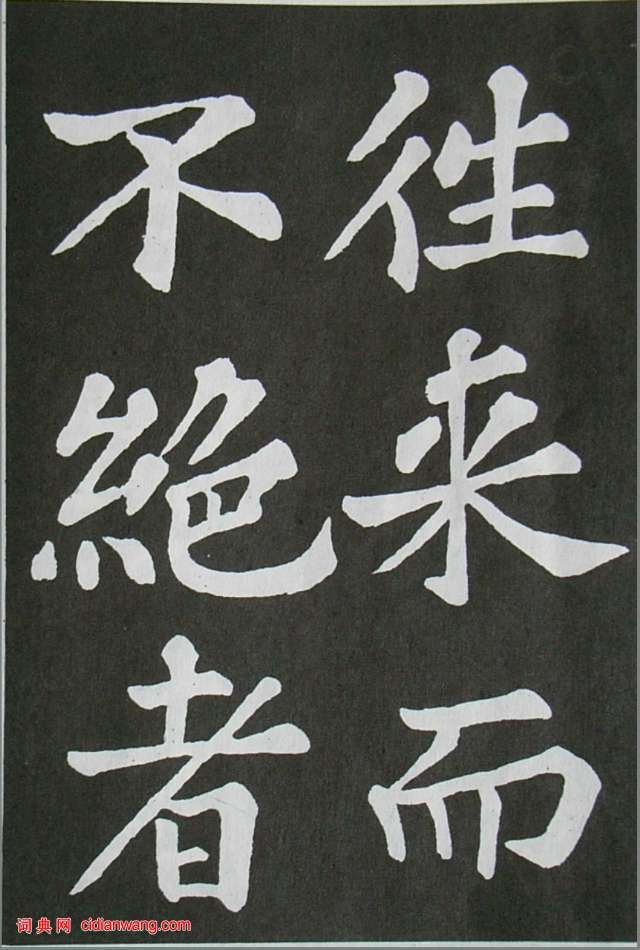 徃来而
不絶者
词典网 cidianwang.com